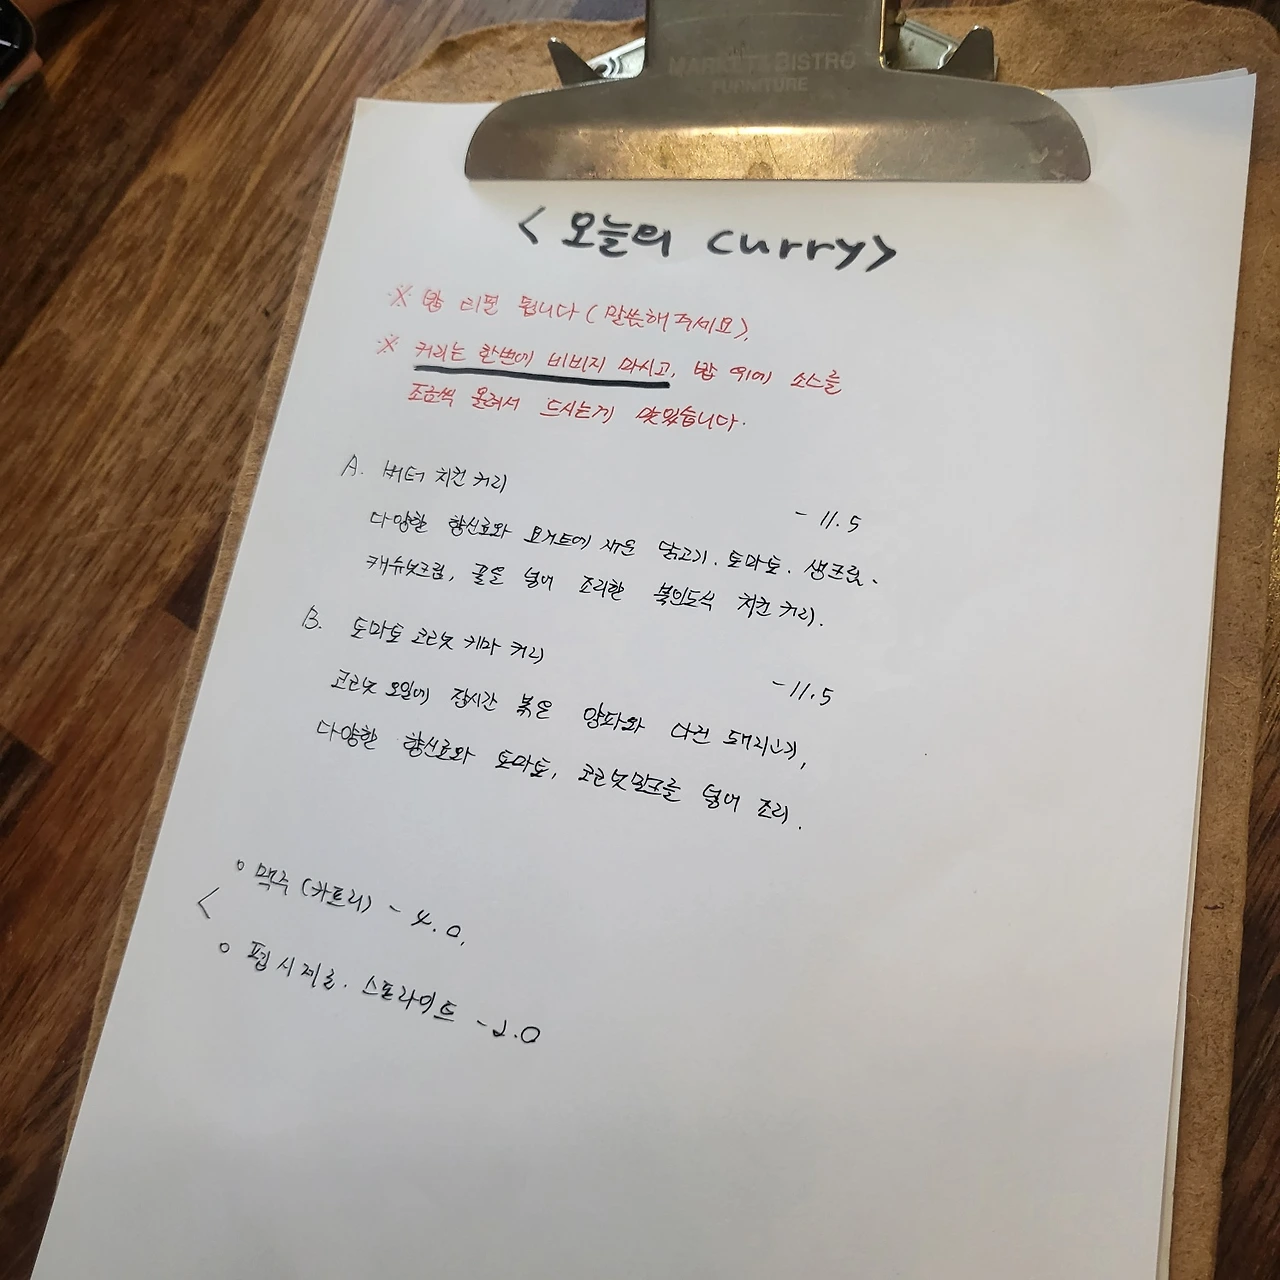 MARKET BISTRO
FURNITURE
< 오늘의 curry>
※ 밥 리필 됩니다 (말씀해주세요).
※ 커리는 한번에 비비지 마시고, 밥 위에 소스를
조금씩 올려서 드시는게 맛있습니다.
A. 버터 치킨 커리
- 11.5
다양한 향신료와 요거트에 재운 닭고기. 토마토. 생크림.
캐슈넛크림, 꿀을 넣어 조리한 북인도식 치킨 커리.
B. 토마토 코코넛 키마 커리
- 11.5
코코넛 오일에 장시간 볶은 양파와 다진 돼지고기,
다양한 향신료와 토마토, 코코넛밀크를 넣어 조리.
o 맥주 (카프리) - 4.0.
<
o 펩시제로. 스프라이트 - 2.0